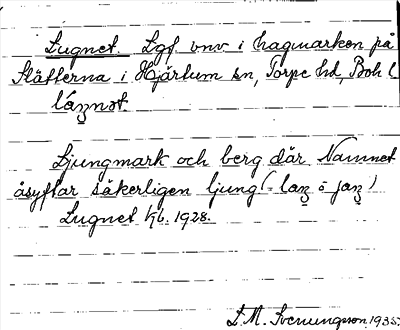 Lugnet. Lgf. vnv i hagmarken på
Slätterna i Hjärtum sn, Torpe hd, Boh l
láʒnət
Ljungmark och berg där Namnet
åsyftar säkerligen ljung (= laʒ ō jaʒ)
Lugnet 1/6. 1928.
L M. Svenungsson 1935.